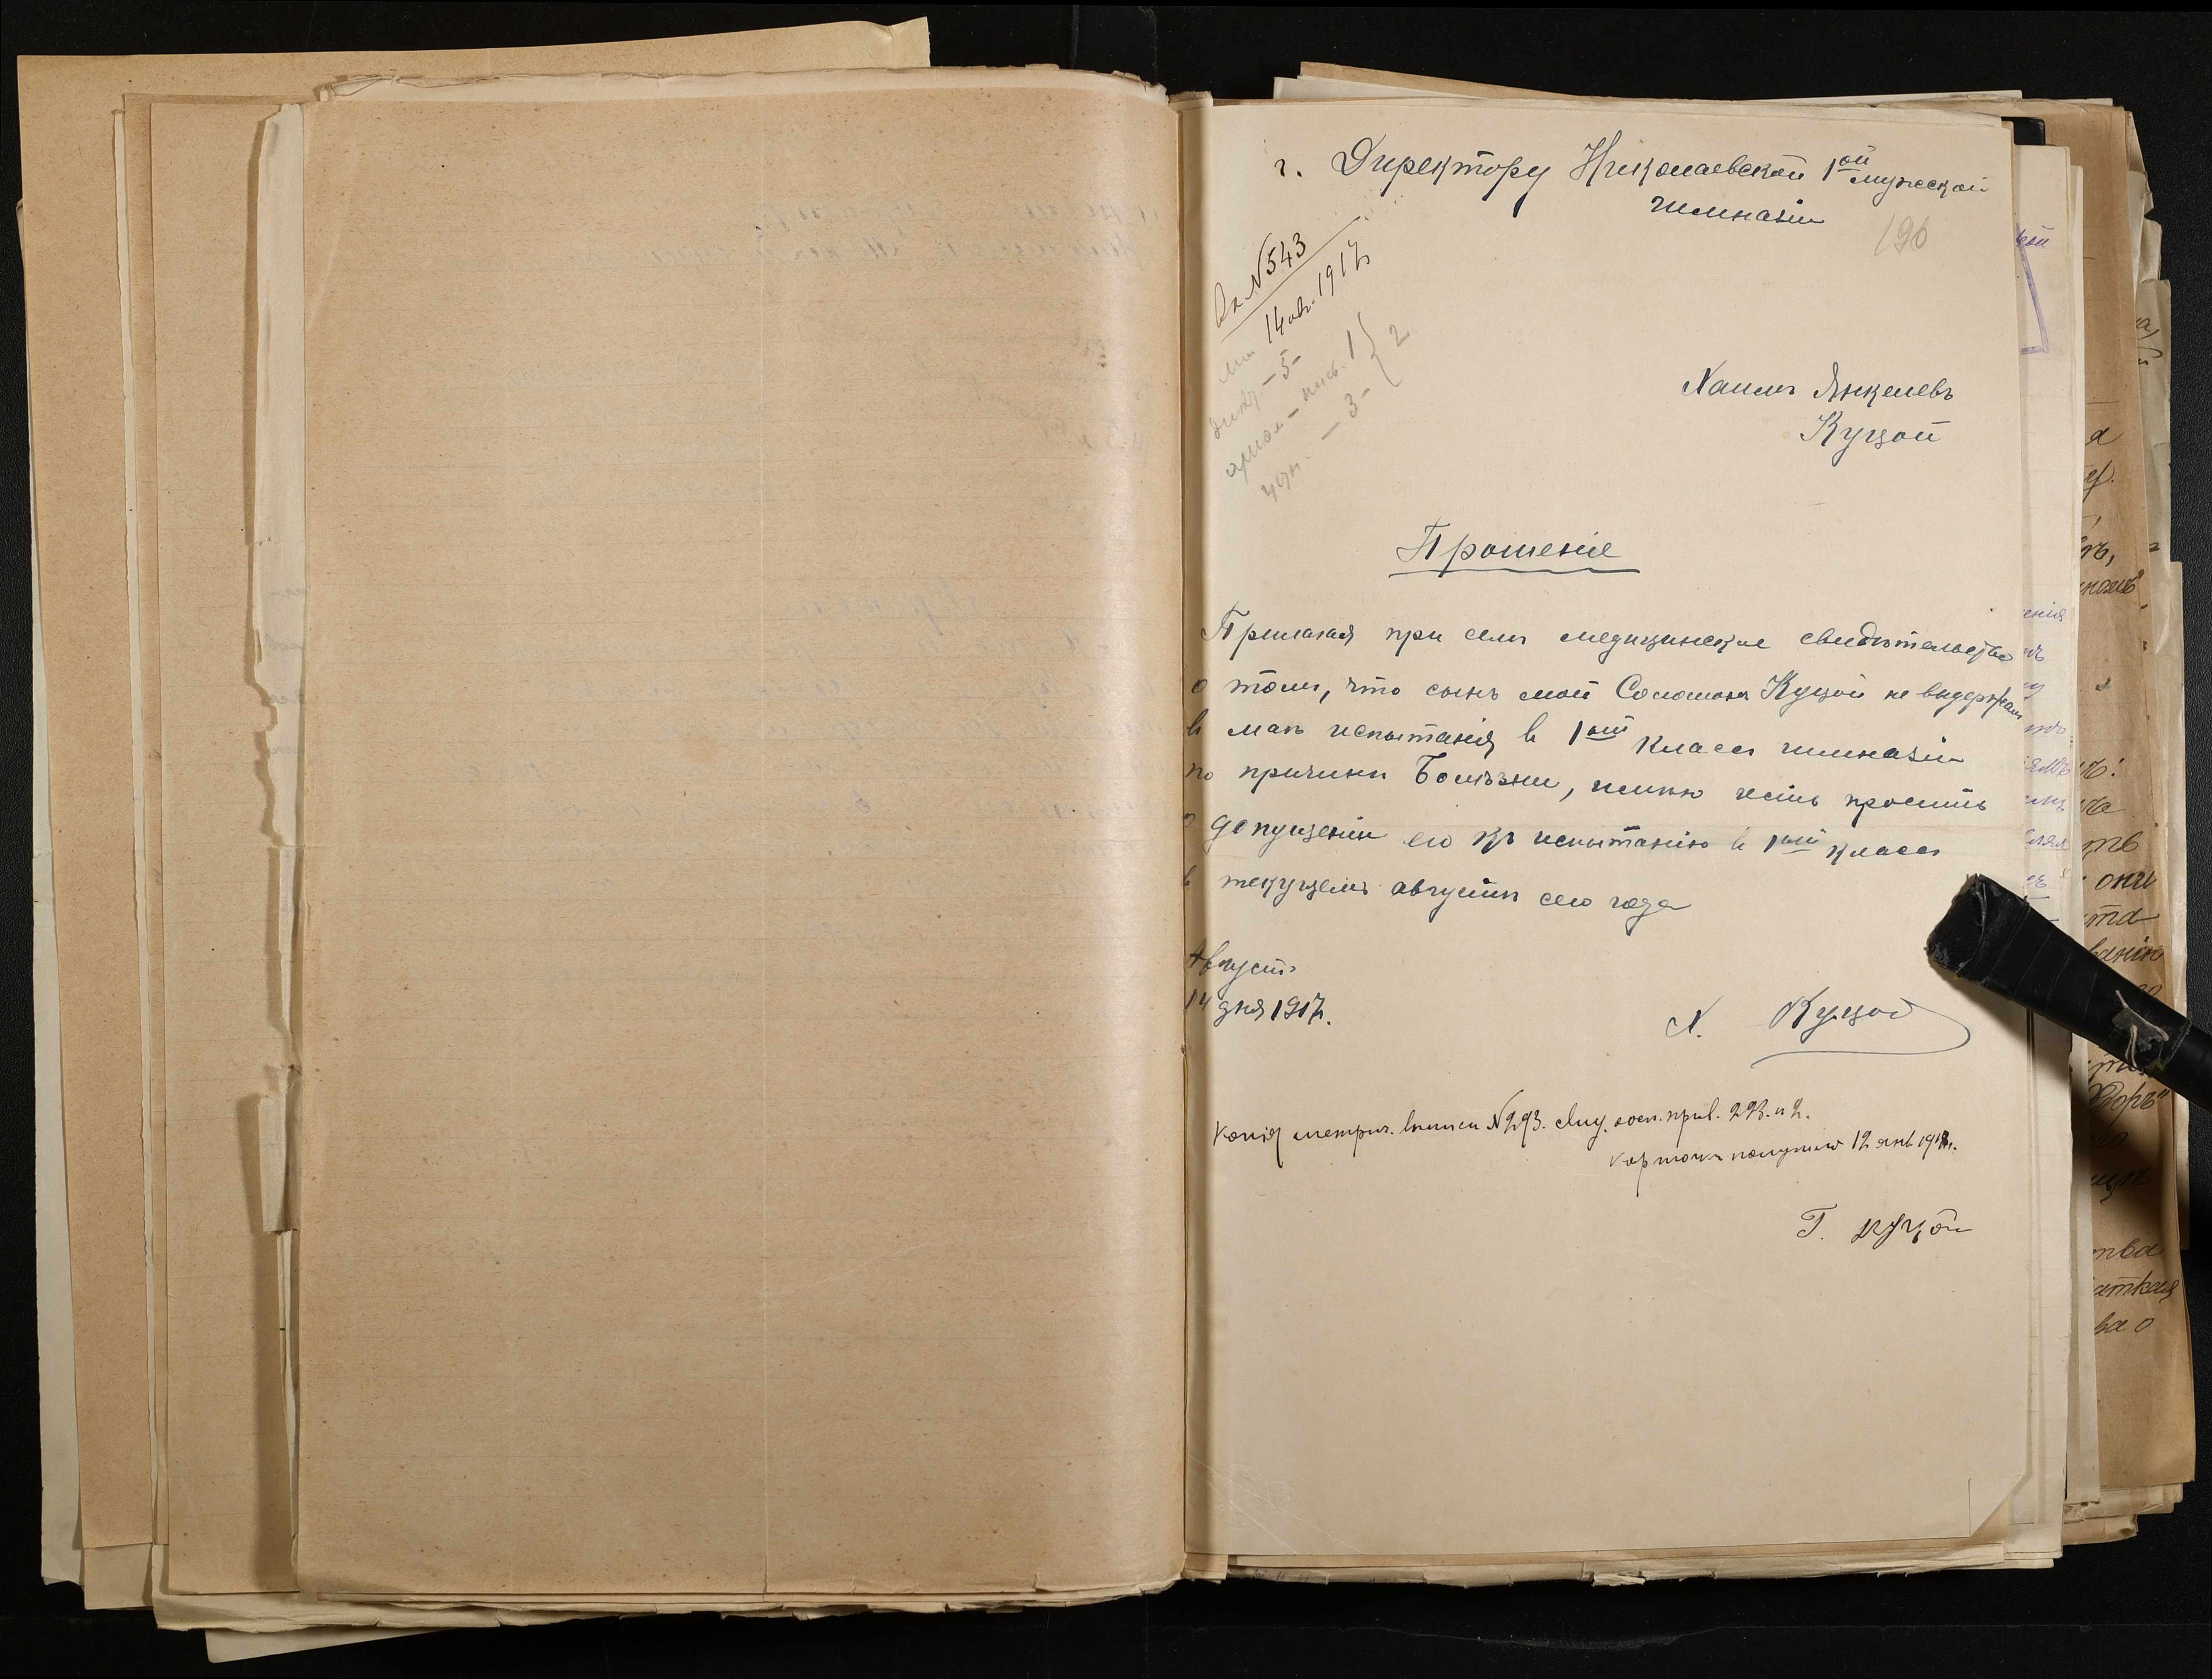 г. Директору Николаевской 1ой мужской
гимназіи
190
Вх №543
14 авг. 1917г
дикт – 5 –
ариѳм – письм. 1 } 2
устн. – 3 –
Хаимъ Янкелевъ
Куцой
Прошеніе
Прилагая при семъ медицинское свидѣтельство
о томъ, что сынъ мой Соломонъ Куцой не выдержалъ
в маѣ испытанія в 1ый классъ гимназіи
по причинѣ болѣзни, имѣю честь просить
о допущеніи его къ испытанію в 1ый классъ
в текущемъ августѣ сего года
Августъ
14 дня 1917г.
Х. Куцой
Копія метрич. выписи №293. Мед. оспоприв. 223. и 2.
карточки получилъ 12 янв 1918г.
Г. Куцой